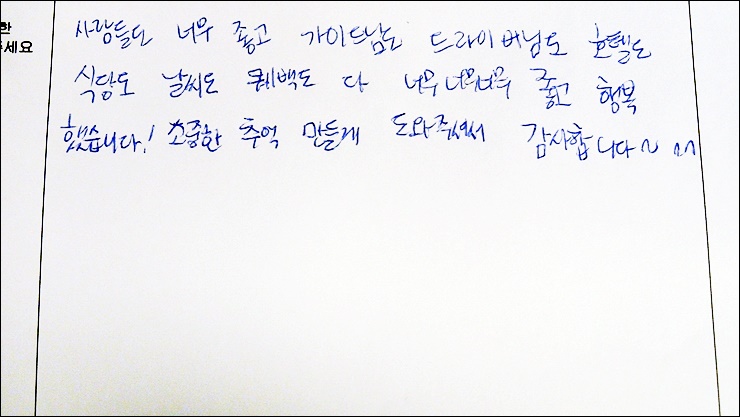 한
주세요
사람들도 너무 좋고 가이드님도 드라이버님도 호텔도
식당도 날씨도 퀘백도 다 너무너무너무 좋고 행복
했습니다! 소중한 추억 만들게 도와주셔서 감사합니다~ ^^